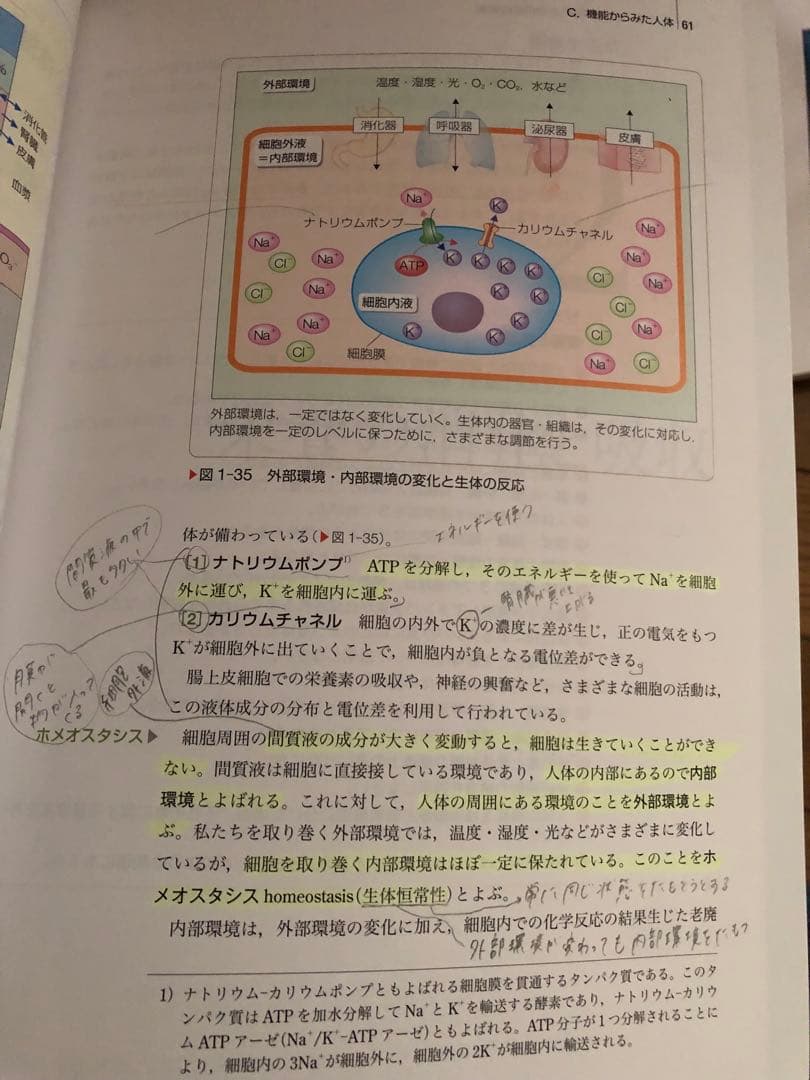 C. 機能からみた人体 61
%
消化管
腎臓
皮膚
血漿
外部環境
温度・湿度・光・O₂・CO₂, 水など
消化器
呼吸器
泌尿器
皮膚
細胞外液
=内部環境
Na⁺
K⁺
ナトリウムポンプ
カリウムチャネル
Na⁺
Cl⁻
Na⁺
Cl⁻
Na⁺
Na⁺
Cl⁻
ATP
K⁺
K⁺
K⁺
K⁺
K⁺
K⁺
K⁺
K⁺
K⁺
K⁺
細胞内液
細胞膜
Na⁺
Na⁺
Cl⁻
Na⁺
Cl⁻
Na⁺
Cl⁻
Na⁺
Cl⁻
外部環境は，一定ではなく変化していく。生体内の器官・組織は，その変化に対応し，
内部環境を一定のレベルに保つために，さまざまな調節を行う。
▶図1-35 外部環境・内部環境の変化と生体の反応
体が備わっている(▶図1-35)。
エネルギーを使う
間質液の中で
最も多い
[1] ナトリウムポンプ¹⁾ ATPを分解し，そのエネルギーを使ってNa⁺を細胞
外に運び，K⁺を細胞内に運ぶ。
[2] カリウムチャネル 細胞の内外でK⁺の濃度に差が生じ，正の電気をもつ
K⁺が細胞外に出ていくことで，細胞内が負となる電位差ができる。
膜が
開くと
物が入って
くる
細胞
外液
腸上皮細胞での栄養素の吸収や，神経の興奮など，さまざまな細胞の活動は，
この液体成分の分布と電位差を利用して行われている。
ホメオスタシス▶ 細胞周囲の間質液の成分が大きく変動すると，細胞は生きていくことができ
ない。間質液は細胞に直接接している環境であり，人体の内部にあるので内部
環境とよばれる。これに対して，人体の周囲にある環境のことを外部環境とよ
ぶ。私たちを取り巻く外部環境では，温度・湿度・光などがさまざまに変化し
ているが，細胞を取り巻く内部環境はほぼ一定に保たれている。このことをホ
メオスタシス homeostasis(生体恒常性)とよぶ。常に同じ状態をたもとうとする
内部環境は，外部環境の変化に加え，細胞内での化学反応の結果生じた老廃
外部環境が変わっても内部環境をたもつ
1) ナトリウム-カリウムポンプともよばれる細胞膜を貫通するタンパク質である。このタ
ンパク質はATPを加水分解してNa⁺とK⁺を輸送する酵素であり，ナトリウム-カリウ
ムATPアーゼ(Na⁺/K⁺-ATPアーゼ)ともよばれる。ATP分子が1つ分解されることに
より，細胞内の3Na⁺が細胞外に，細胞外の2K⁺が細胞内に輸送される。